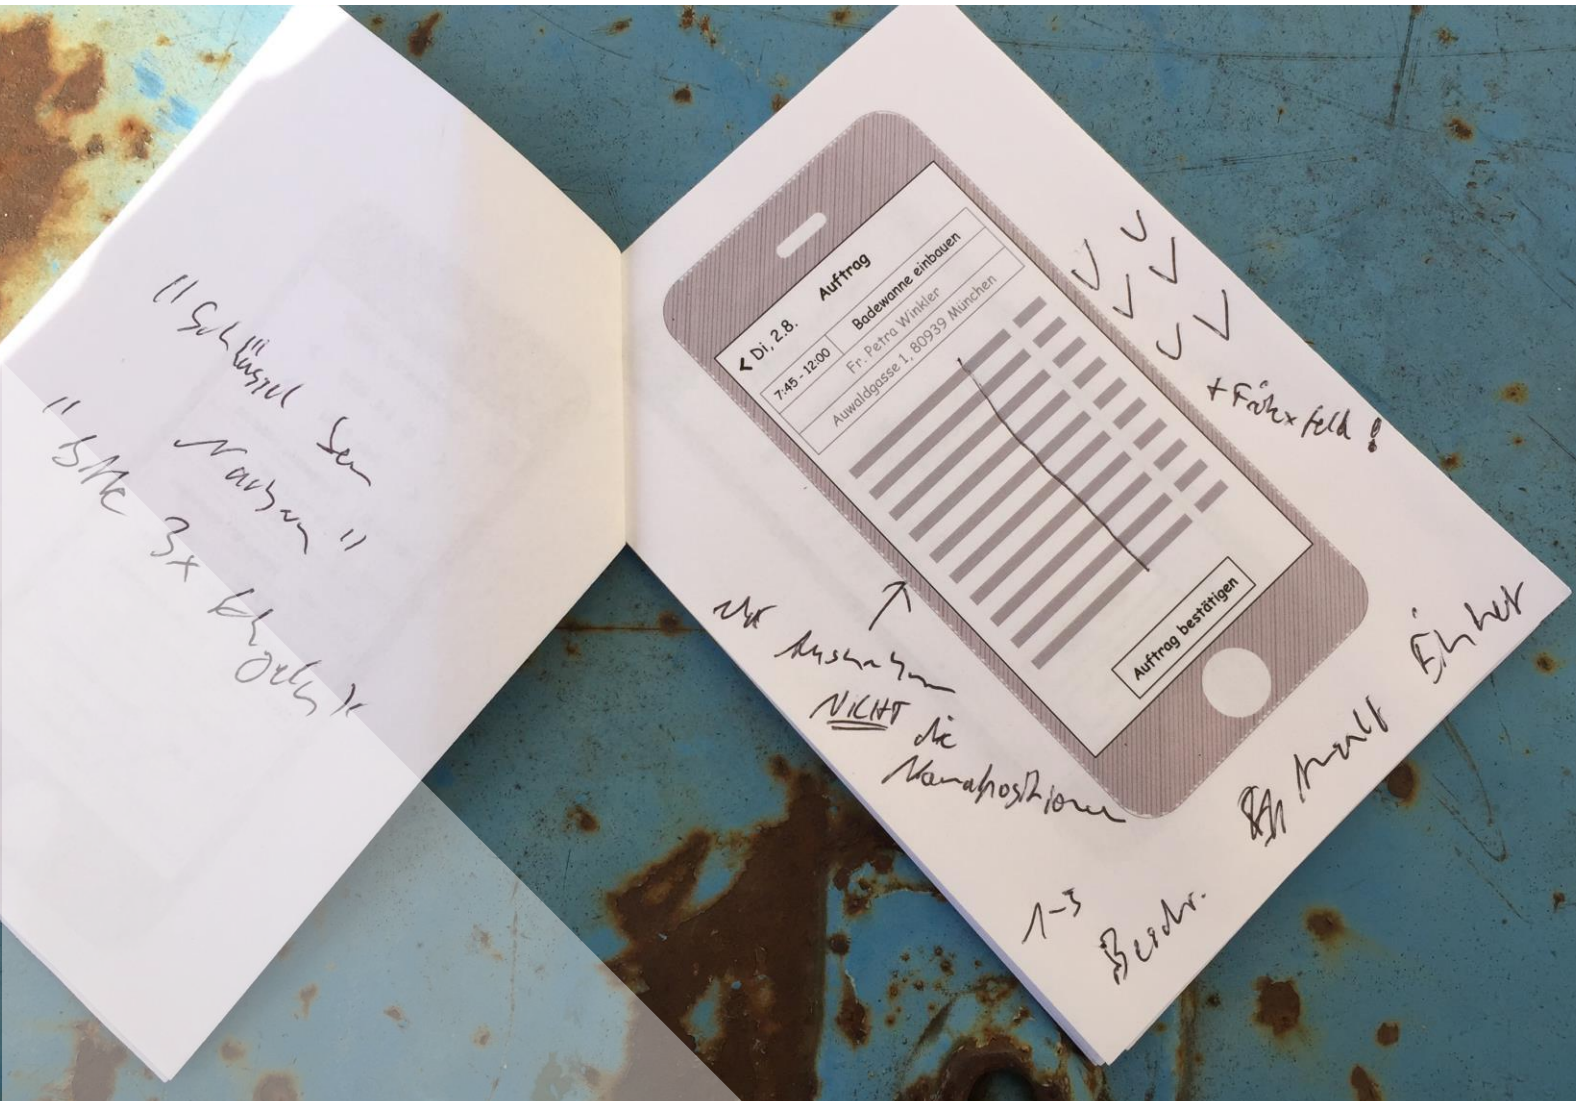 "Schlüssel bem
Nachbarn"
"Bitte 3x klingeln"
< Di, 2.8. Auftrag
7:45 - 12:00 Badewanne einbauen
Fr. Petra Winkler
Auwaldgasse 1, 80939 München
Auftrag bestätigen
nur
Ausnahmen
NICHT die
Normalpositionen
1-5
Beschr.
Einheit